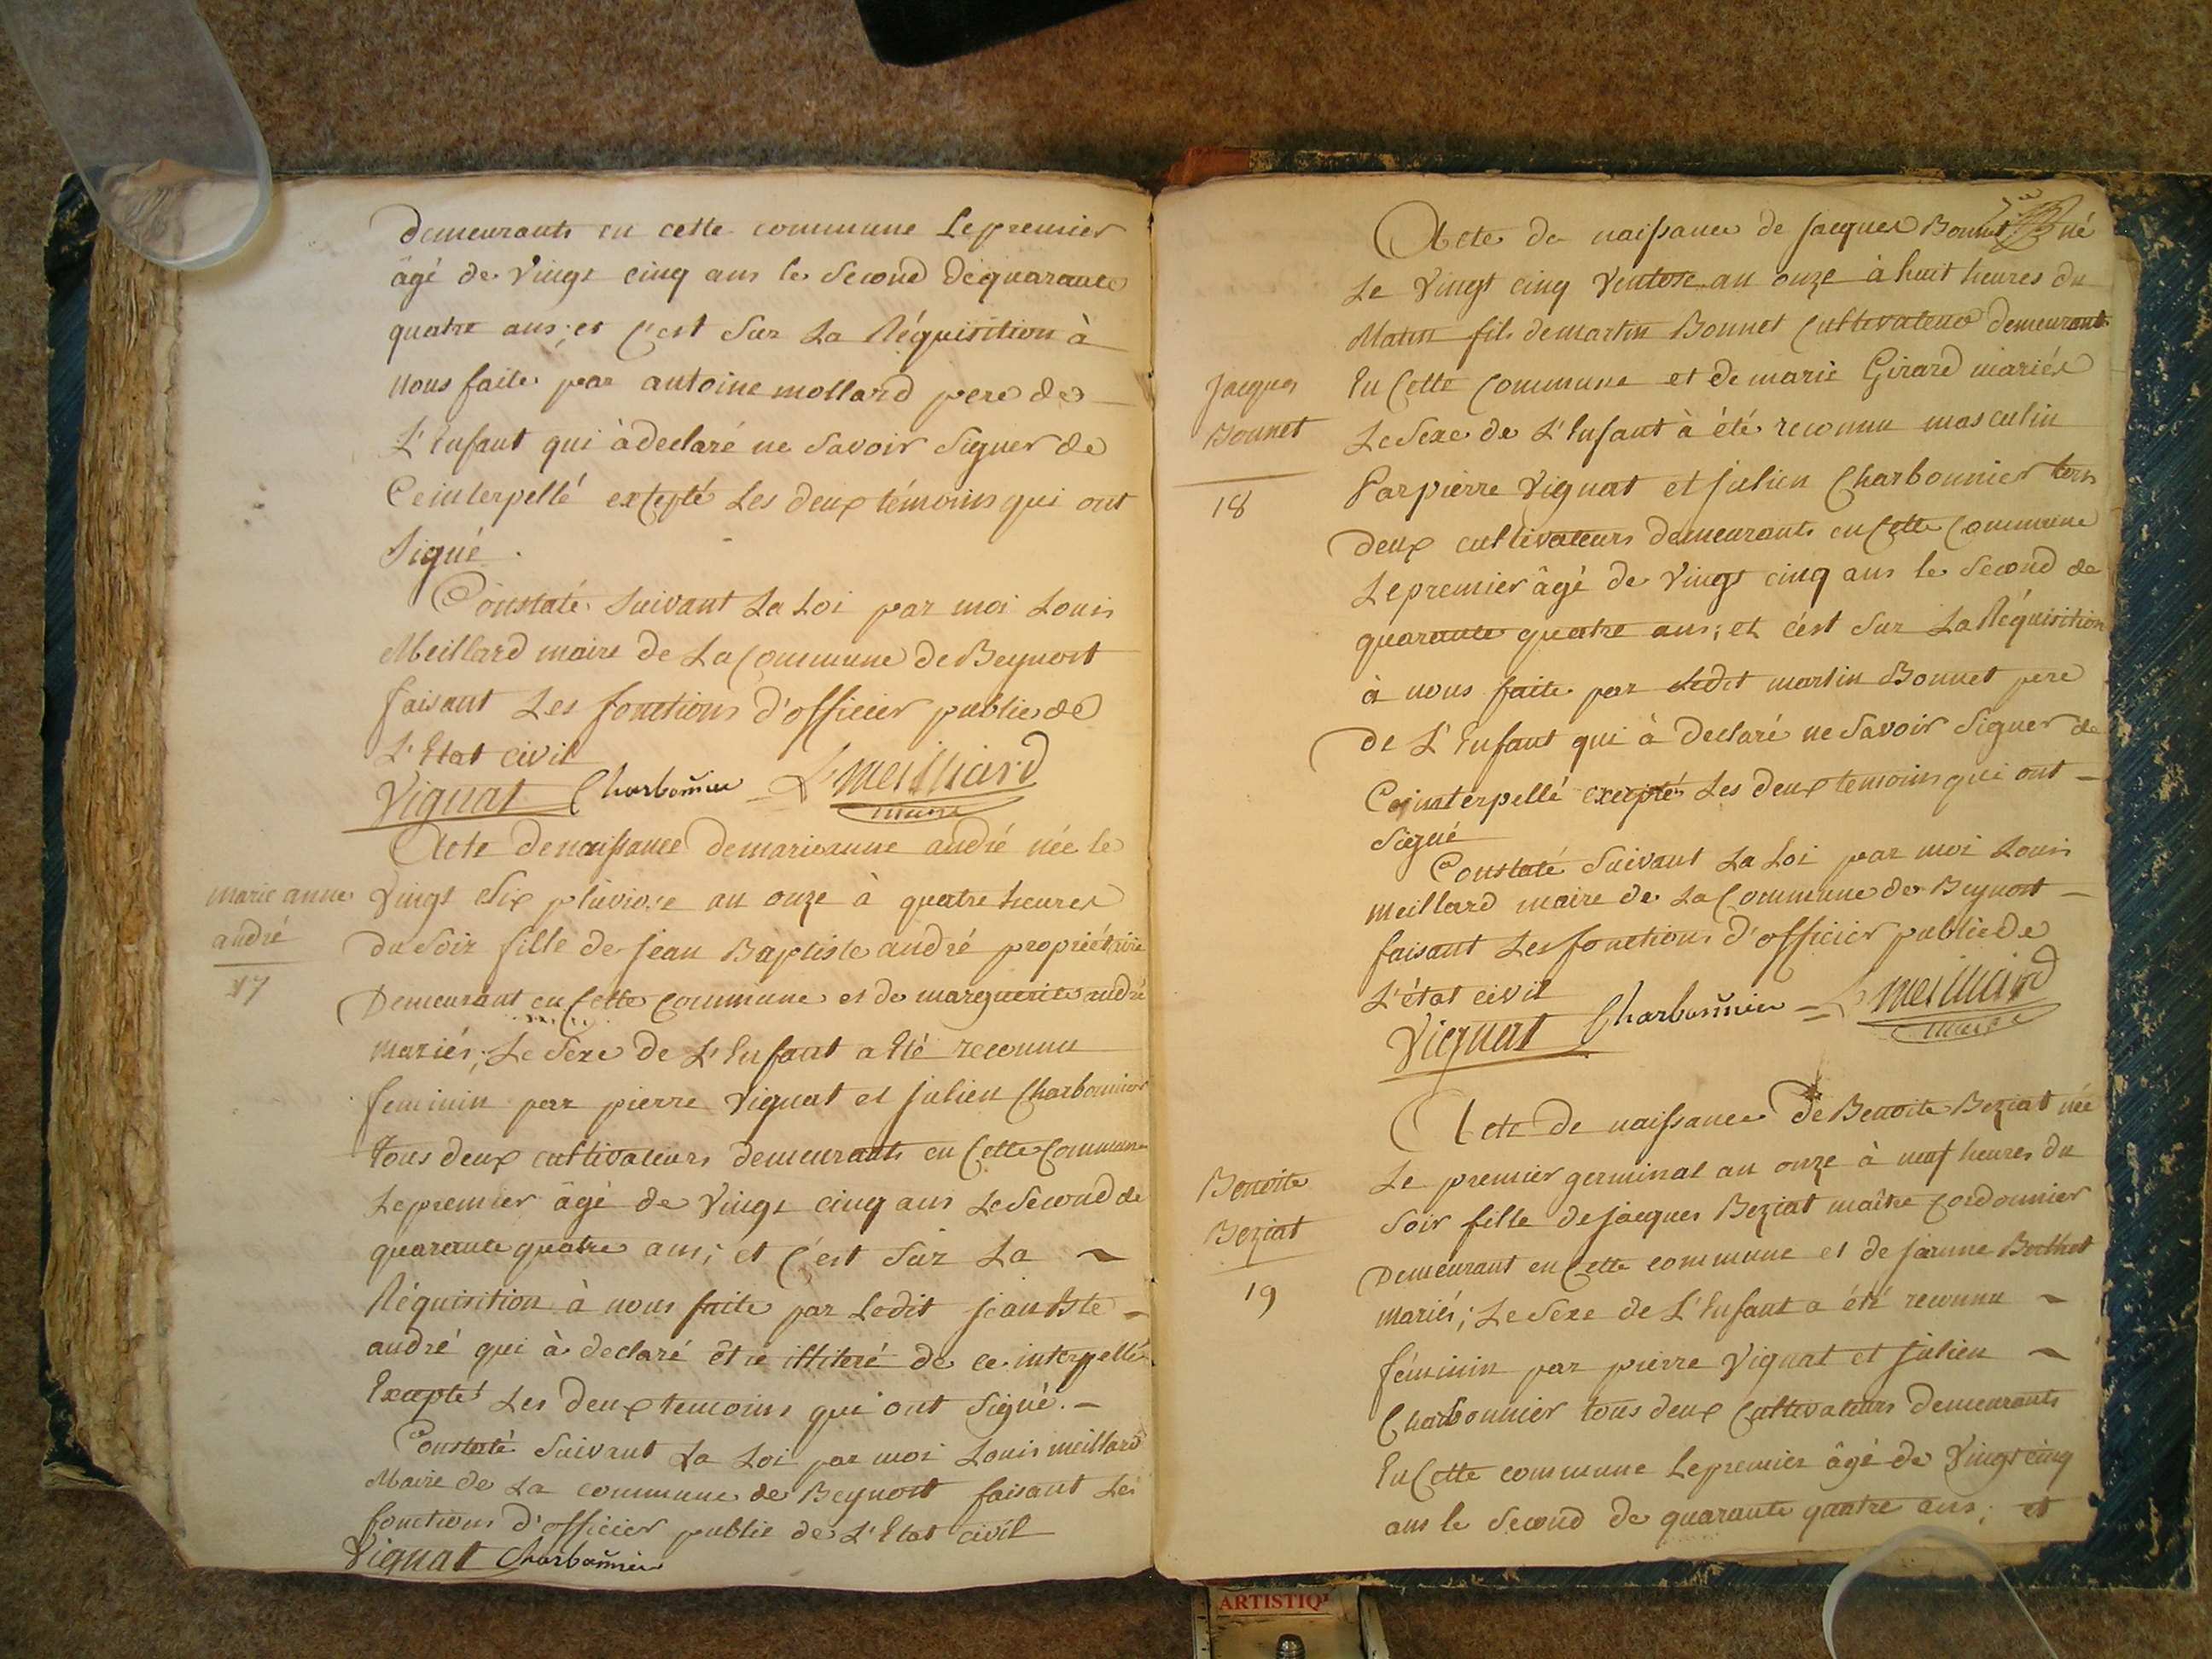 demeurants en cette commune Le premier
âgé de Vingt cinq ans le Second de quarante
quatre ans; et C'est Sur La Réquisition à
Nous faite par antoine mollard pere de
L'Enfant qui à declaré ne Savoir Signer de
Ce interpellé excepté Les deux témoins qui ont
Signé.
Constaté Suivant La Loi par moi Louis
Meillard maire de La Commune de Beynost
faisant Les fonctions d'officier public de
L'Etat civil
Vignat Charbonnier L Meilliard
maire
Acte de naissance de marieanne andré née le
marie anne
andré
17
Vingt Six pluviose an onze à quatre heures
du Soir fille de Jean Baptiste andré propriétaire
Demeurant en Cette Commune et de marguerite andré
mariés; Le Sexe de L'Enfant a Eté reconnu
feminin par pierre Vignat et Julien Charbonnier
tous deux cultivateurs demeurants en Cette Commune
Le premier âgé de Vingt cinq ans Le Second de
quarante quatre ans; et C'est Sur La ~
Réquisition à nous faite par Ledit Jean Bte -
andré qui à declaré être illiteré de ce interpellé
Excepté Les deux temoins qui ont Signé. -
Constaté Suivant La Loi par moi Louis meillard
Maire de La commune de Beynost faisant Les
fonctions d'officier public de L'Etat civil
Vignat Charbonnier
Acte de naissance de Jacques Bonnet né
Le Vingt cinq Ventose an onze à huit heures du
Matin fils de martin Bonnet Cultivateur demeurant
Jacques
Bonnet
18
En Cette Commune et de marie Girard mariés
Le Sexe de L'Enfant à été reconnu masculin
Par pierre Vignat et Julien Charbonnier tous
deux cultivateurs demeurants en Cette Commune
Le premier âgé de Vingt cinq ans le Second de
quarante quatre ans; et c'est Sur La Réquisition
à nous faite par Ledit martin Bonnet pere
de L'Enfant qui à declaré ne Savoir Signer de
Ce interpellé excepté Les deux temoins qui ont -
Signé
Constaté Suivant La Loi par moi Louis
meillard maire de La Commune de Beynost -
faisant Les fonctions d'officier public de
L'état civil
Vignat Charbonnier L Meilliard
maire
Acte de naissance de Benoite Beziat née
Benoite
Beziat
19
Le premier germinal an onze à neuf heures du
Soir fille de Jacques Beziat maître Cordonnier
Demeurant en Cette commune et de Jeanne Berthet
mariés; Le Sexe de L'Enfant a été reconnu ~
féminin par pierre Vignat et Julien ~
Charbonnier tous deux Cultivateurs demeurants
En Cette commune Le premier âgé de Vingt cinq
ans le Second de quarante quatre ans; et
ARTISTIQ